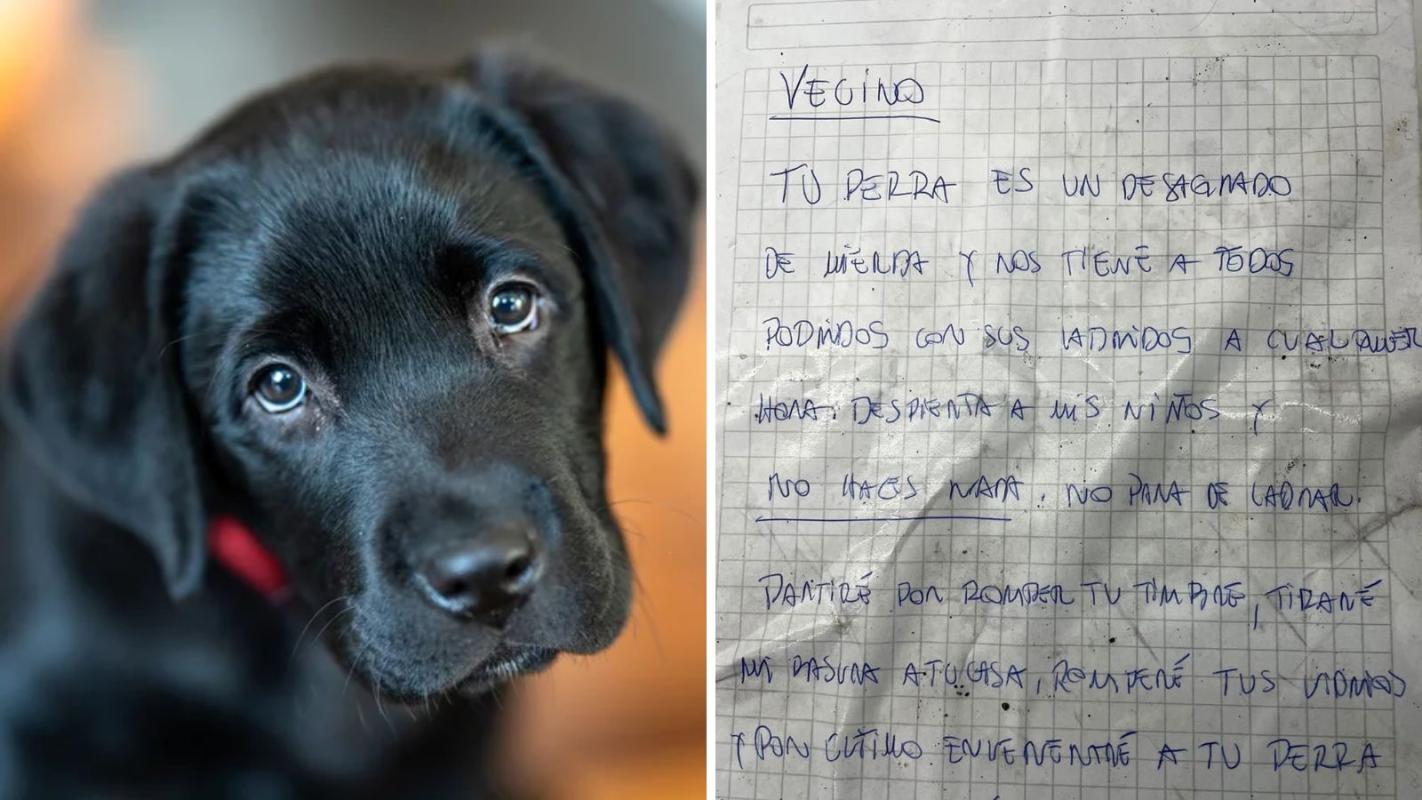 VECINO
TU PERRA ES UN DESAGRADO
DE MIERDA Y NOS TIENE A TODOS
PODRIDOS CON SUS LADRIDOS A CUALQUIER
HORA. DESPIERTA A MIS NIÑOS Y
NO HACES NADA. NO PARA DE LADRAR.
PARTIRÉ POR ROMPER TU TIMBRE, TIRARÉ
MI BASURA A TU CASA, ROMPERÉ TUS VIDRIOS
Y POR ULTIMO ENVENENARÉ A TU PERRA